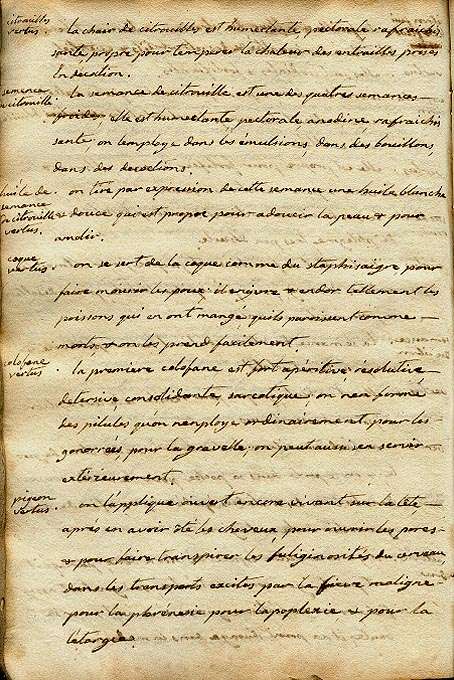 citrouilles
vertus
. la chair de citrouilles est humectante pectorale rafraichis
sante propre pour temperer la chaleur des entrailles prises
En decoction.
semence
de citrouille
. la semance de citrouille est une des quatres semances
froides, elle est humectante pectorale anodine rafraichis
sente, on lemploye dans les émulsions, dans des bouillons,
dans des decoctions.
huile de
semance
de citrouille
vertus.
. on tire par expression de cette semance une huile blanche
& douce qui est propre pour adoucir la peau & pour
amolir.
coque
vertus
. on se sert de la coque comme du staphisaigre pour
faire mourir les poux; il enjvre & endor tellement les
poissons qui en ont mangé quils paroissent comme
morts, & on les prend facilement.
colofane
vertus
. la premiere colofane est fort apéritive, résolutive
detersive consolidante, sarcotique; on en forme
des pilules quon nemploye ordinairement pour les
gonorrées, pour la gravelle, on peut aussi en servir
extérieurement.
pigeon
vertus.
. on lapplique ouvert encore vivant sur la tete
après en avoir ôté les cheveux, pour ouvrir les pores
& pour faire transpirer les fuliginosités du cerveau
dans les transports excites par la fievre maligne
pour la phrénésie pour lapoplexie & pour la
létargie.